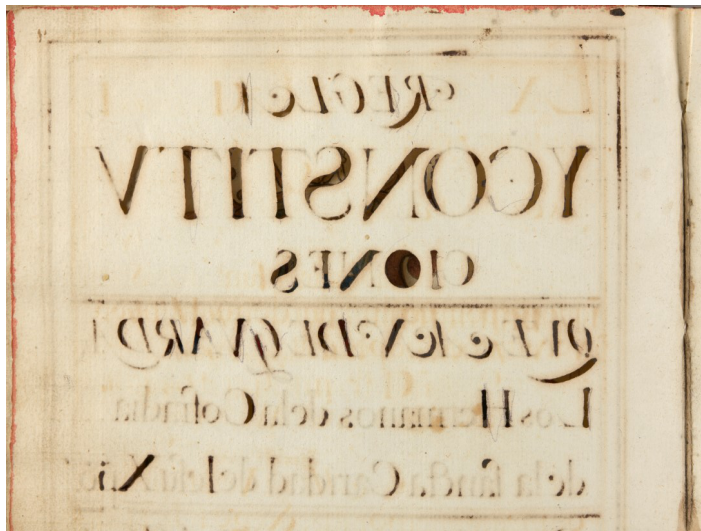 REGLA
Y CONSTITV
CIONES
QVE AN DE GVARDA
Los Hermanos dela Cofradia
de la sancta Caridad de Iesu Xrõ